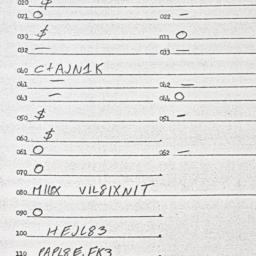 020 $
021 O 022 –
030 $ 031 O
032 — 033 —
040 C+AJN1K
041 — 042 —
043 — 044 O
050 $ 051 –
060 $
061 O 062 –
070 O
080 MILX VIL8IXNIT
090 O
100 HEJL83
110 PAPL8E.FK3